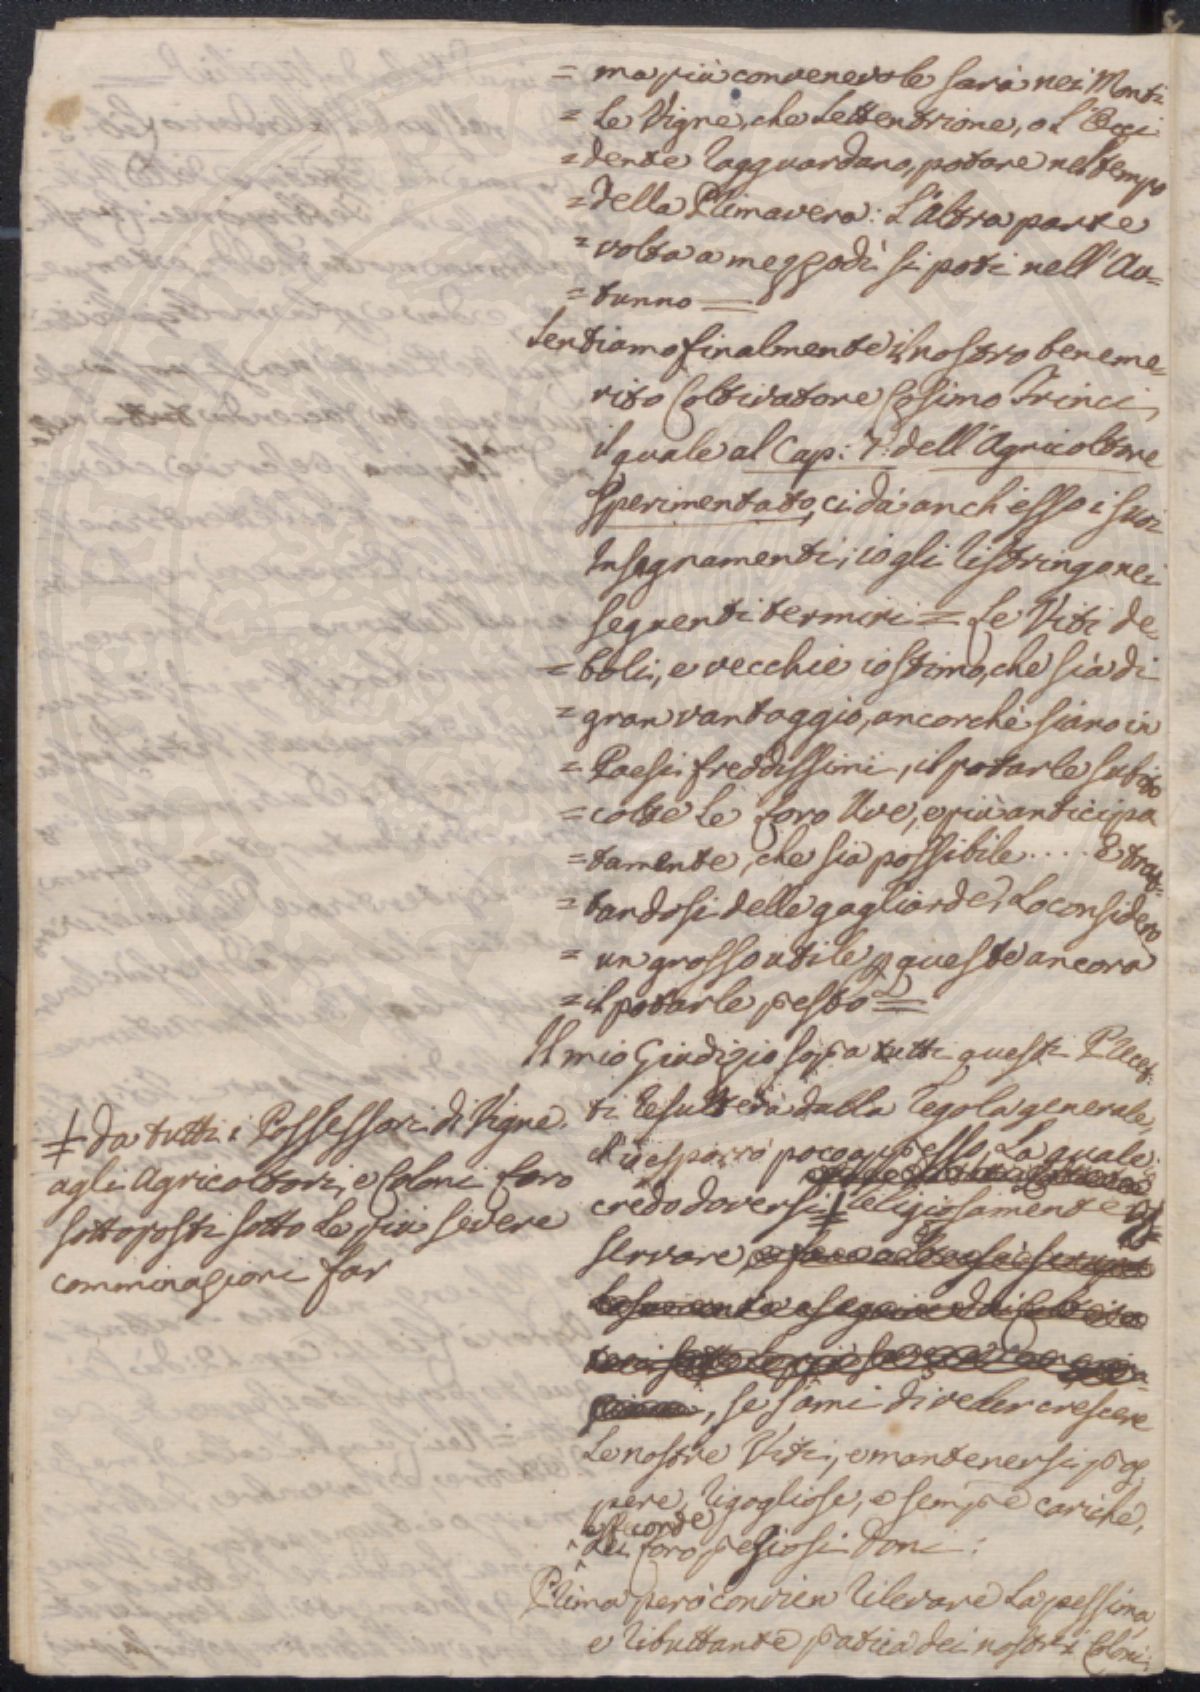 = ma più convenevole sarà nei Monti
= Le Vigne, che Settentrione, o L'Occi
= dente ragguardano, potare nel tempo
= della Primavera: L'altra parte
= volta a mezzodì si poti nell'Au-
= tunno =
Sentiamo finalmente il nostro beneme-
rito Coltivatore Cosimo Trinci,
il quale al Cap: 7: dell'Agricoltore
Sperimentato, ci dà anch'esso i suoi
Insegnamenti; io gli ristringo nei
seguenti termini = Le Viti de-
= boli, e vecchie io stimo, che sia di
= gran vantaggio, ancorchè siano in
= Paesi freddissimi, il potarle subito
= colte le loro Uve, e più anticipa
= tamente, che sia possibile .... E trat-
= tandosi delle gagliarde, Lo considero
= un grosso utile p queste ancora
= il potarle presto =
Il mio Giudizio sopra tutti questi Precet-
ti resulterà dalla regola generale,
ch'esporrò poco appresso, La quale
credo doversi ‡ religiosamente os-
servare
, se s'ami di veder crescere
Le nostre Viti, e mantenersi pros
pere, rigogliose, e sempre cariche,
dei loro preziosi doni:
Prima però convien rilevare La pessima
e ributtante pratica dei nostri Coloni;
‡ da tutti i Possessori di Vigne
agli Agricoltori, e Coloni loro
sottoposti sotto Le più severe
comminazioni far